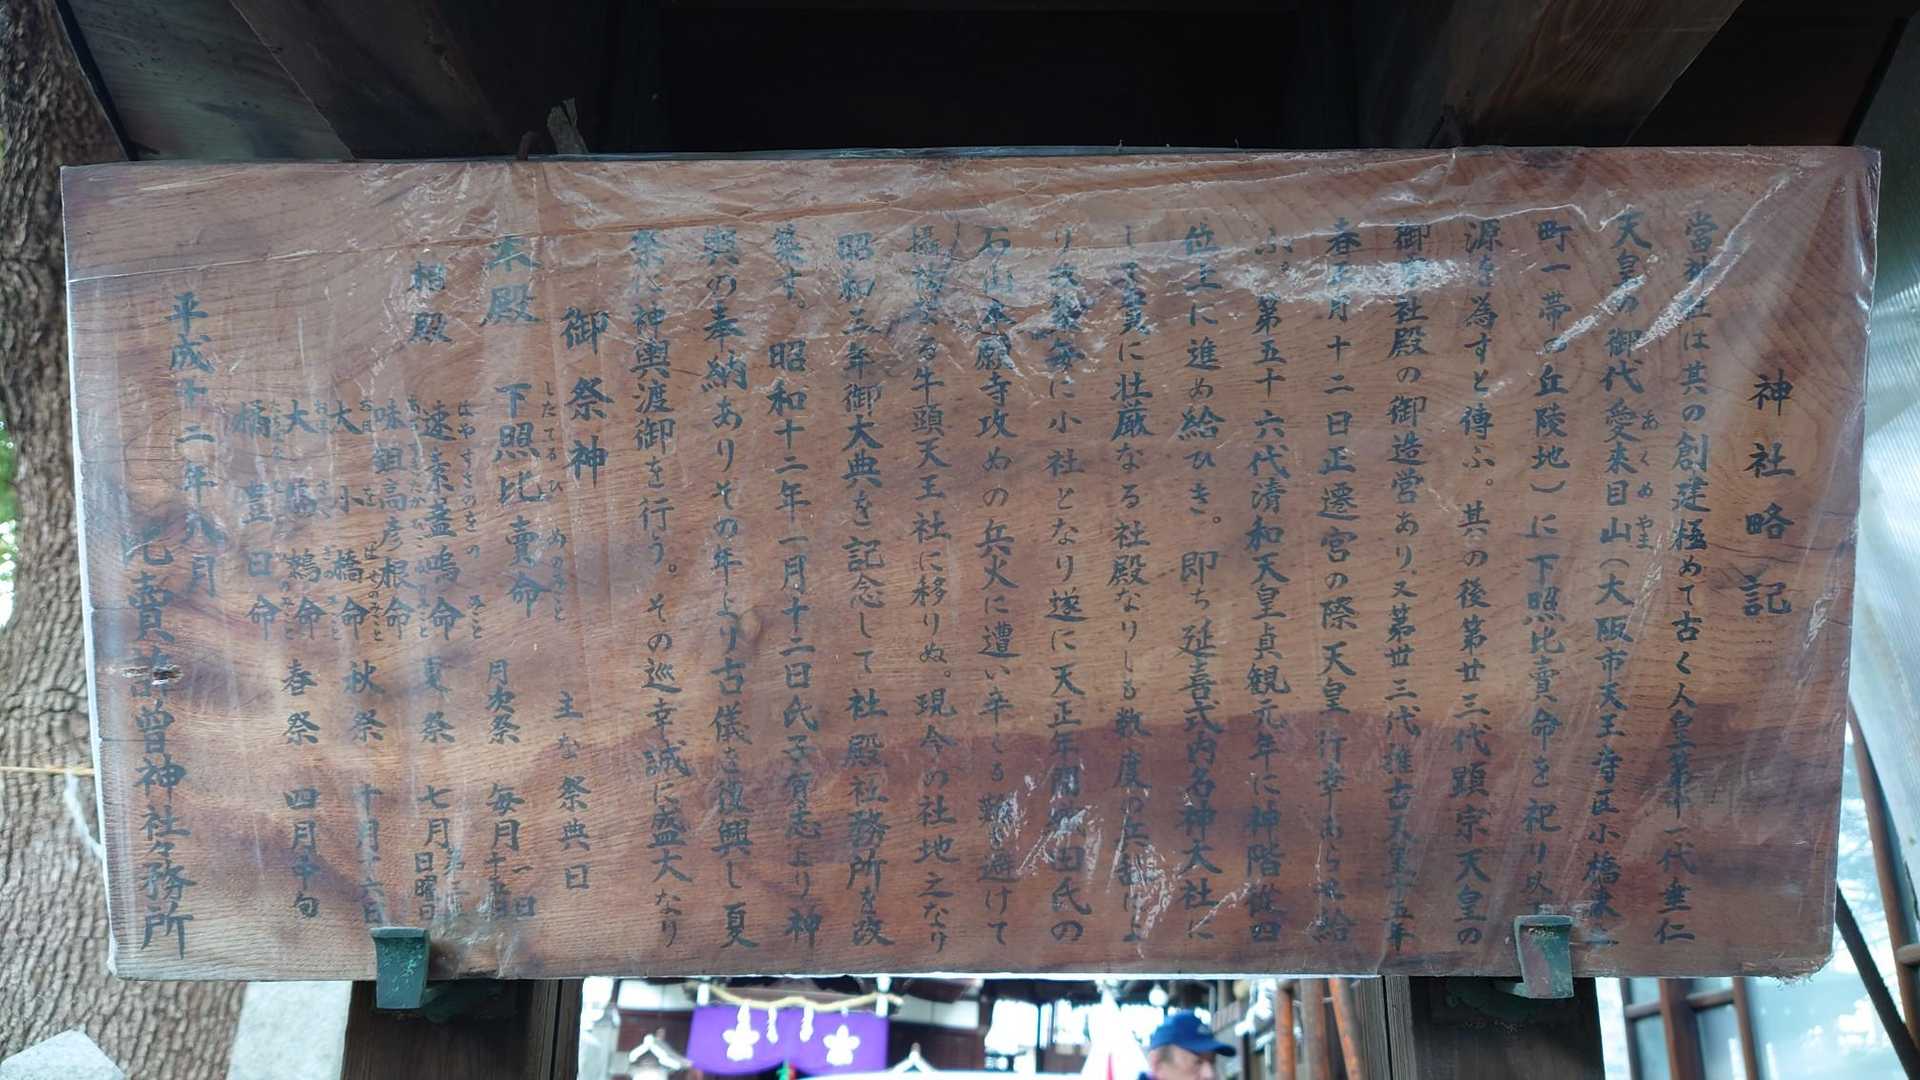 神社略記
當神社は其の創建極めて古く人皇第十一代垂仁
天皇の御代愛来目山(大阪市天王寺区小橋東之
あくめやま
町一帯の丘陵地)に下照比賣命を祀り以て
源を為すと傳ふ。其の後第廿三代顕宗天皇の
御宇社殿の御造営あり又第丗三代推古天皇十五年
春正月十二日正遷宮の際天皇行幸あらせ給
ふ。第五十六代清和天皇貞観元年に神階従四
位上に進め給ひき。即ち延喜式内名神大社に
して実に壮厳なる社殿なりしも数度の兵乱によ
り改築毎に小社となり遂に天正年間織田氏の
石山本願寺攻めの兵火に遭い辛じて難を避けて
摂社なる牛頭天王社に移りぬ。現今の社地之なり
昭和三年御大典を記念して社殿社務所を改
築す。昭和十二年一月十二日氏子有志より神
輿の奉納ありその年より古儀を復興し夏
祭に神輿渡御を行う。その巡幸誠に盛大なり
御祭神 主な祭典日
本殿 下照比賣命 月次祭 毎月一日十五日
したてるひめのみこと
相殿 速素盞嗚命 夏祭 七月第三日曜日
はやすさのをのみこと
味鉏高彦根命
大小橋命 秋祭 十月十六日
大鷦鷯命 春祭 四月中旬
橘豊日命
平成十二年八月
比賣許曽神社々務所